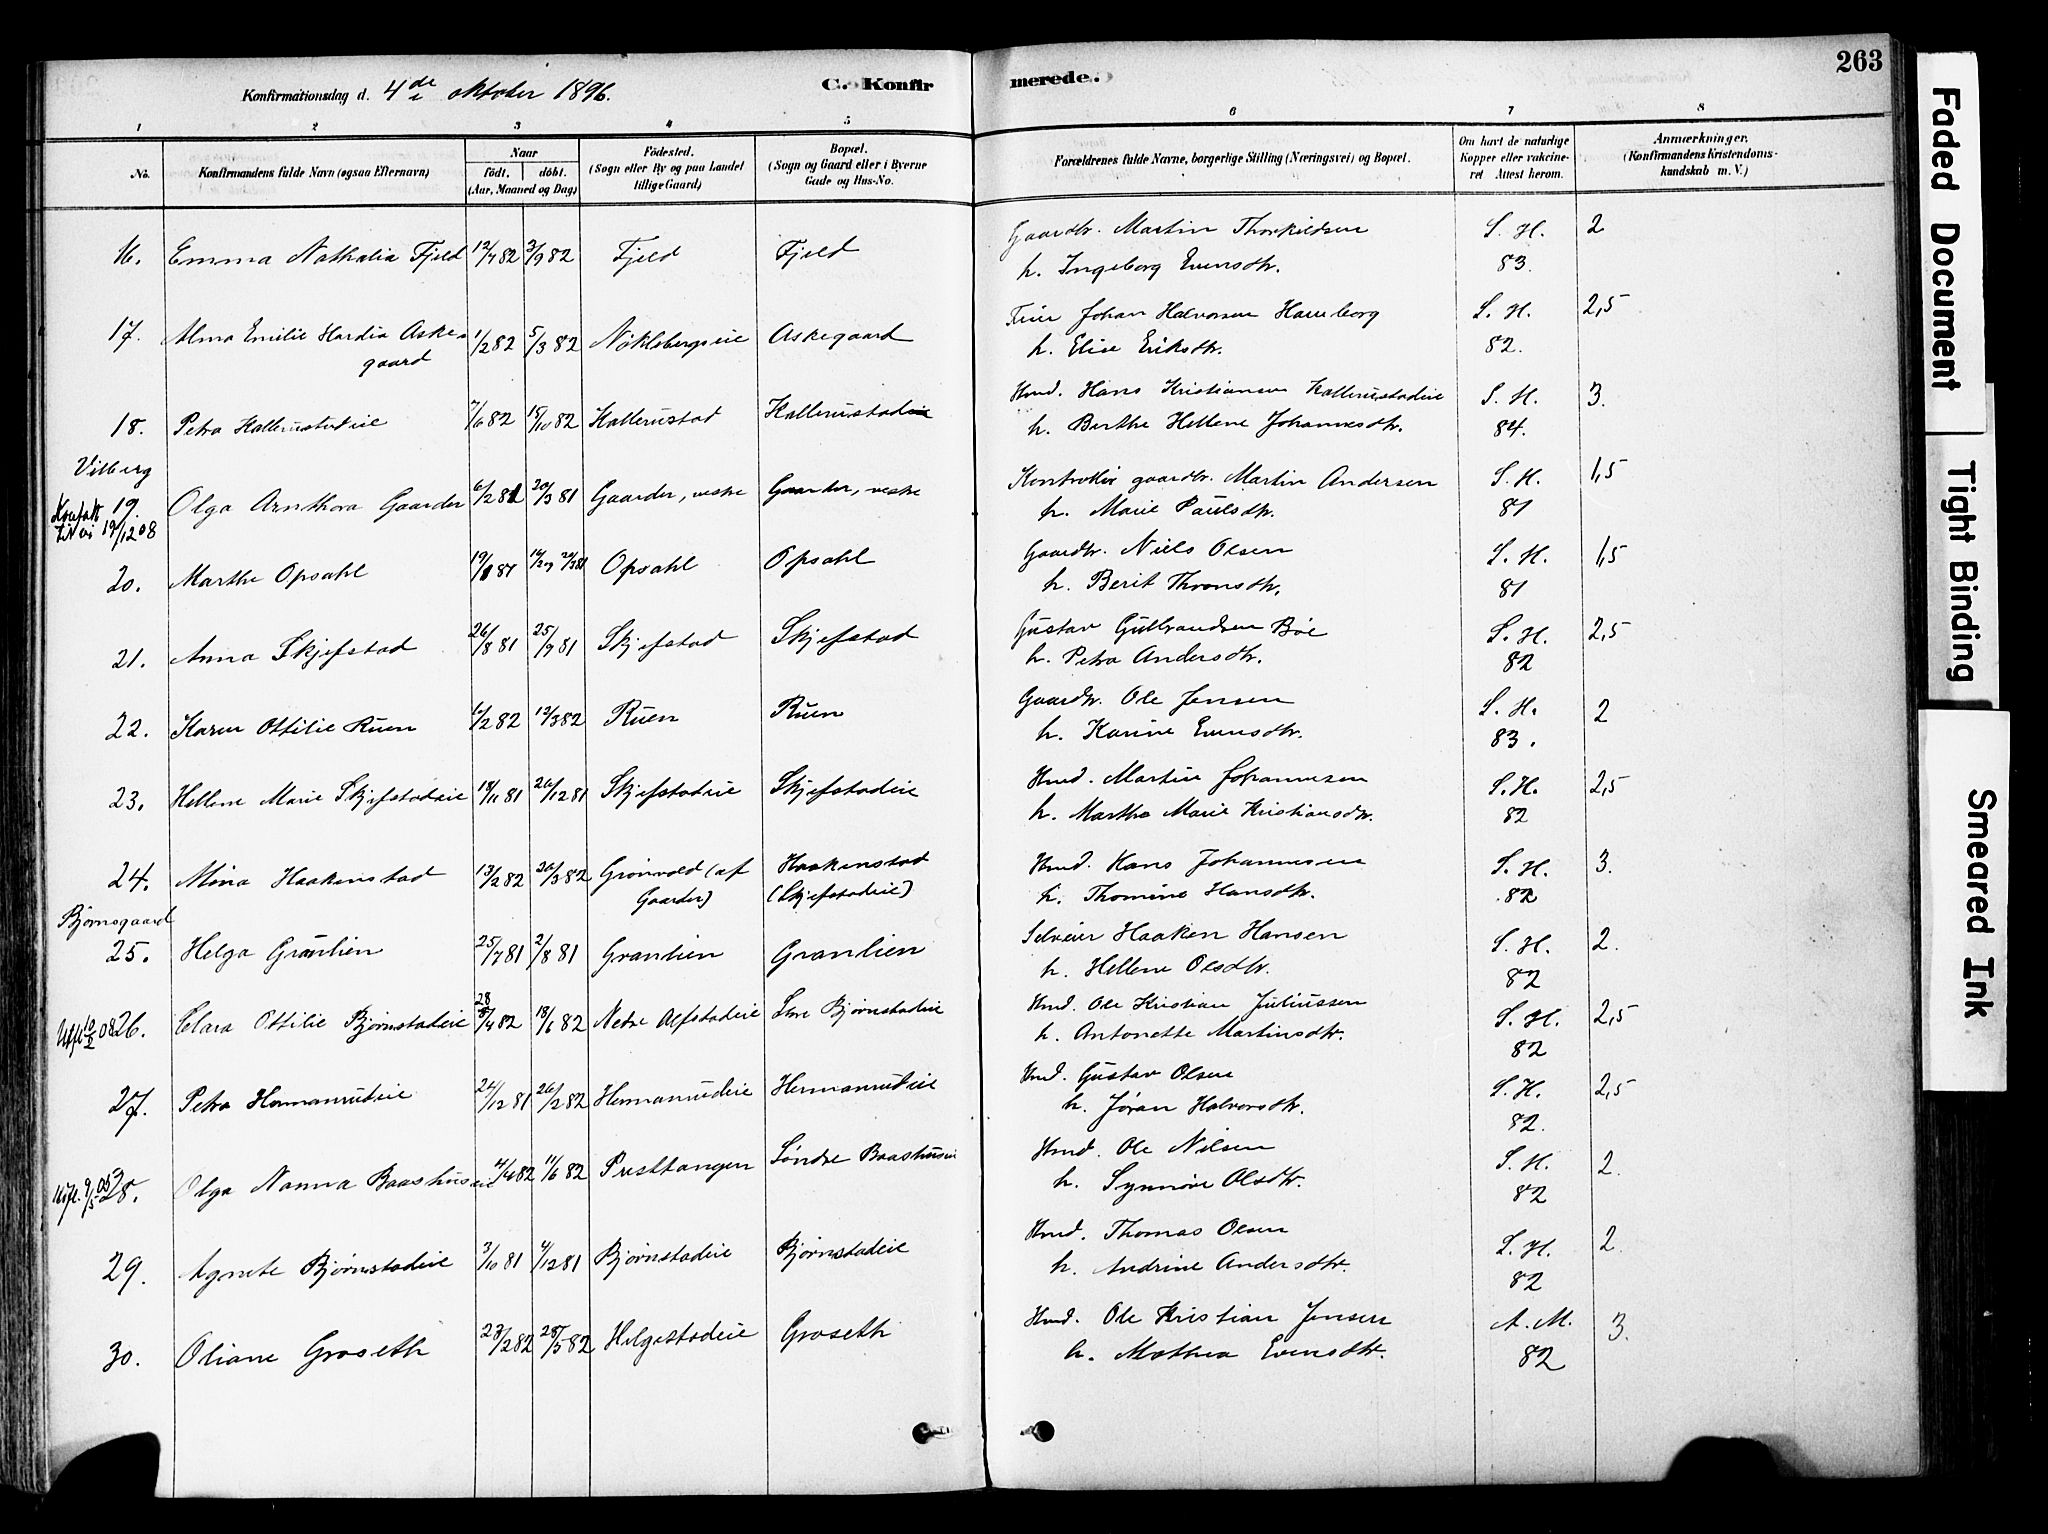 Konfirmationsdag d. 4de oktober 1896.
C. Konfirmerede.
263
1 2 3 4 5 6 7 8
No. Konfirmandens fulde Navn (ogsaa Efternavn) Naar födt. döbt. (Aar, Maaned og Dag) Födested. (Sogn eller By og paa Landet tillige Gaard) Bopæl. (Sogn og Gaard eller i Byerne Gade og Hus-No. Forældrenes fulde Navne, borgerlige Stilling (Næringsvei) og Bopæl. Om havt de naturlige Kopper eller vakcineret Attest herom. Anmærkninger. (Konfirmandens Kristendomskundskab m. V.)
16. Emma Nathalia Fjeld 12/7 82 3/9 82 Fjeld Fjeld Gaardbr. Martin Thorkildsen S. H. 2
h. Ingeborg Evensdtr. 83.
17. Alma Emilie Hardia Askegaard 1/2 82 5/3 82 Nøklebergseie Askegaard Feier Johan Halvorsen Hamborg S. H. 2,5
h. Elise Eriksdtr. 82.
18. Petra Kallerustadeie 7/6 82 15/10 82 Kallerustad Kallerustadeie Hmd. Hans Kristiansen Kallerustadeie S. H. 3.
h. Berthe Hellene Johannesdtr. 84.
Vilberg
19. Olga Arnthora Gaarder 6/2 81 20/3 81 Gaarder, vestre Gaarder, vestre Kontrollør gaardbr. Martin Andersen S. H. 1,5
19/12 08
h. Marie Paulsdtr. 81
20. Marthe Opsahl Opsahl Opsahl Gaardbr. Niels Olsen S. H. 1,5
h. Berit Thronsdtr. 81
21. Anna Skjefstad 26/8 81 25/9 81 Skjefstad Skjefstad Gustav Gulbrandsen Bøe S. H. 2,5
h. Petra Andersdtr. 82
22. Karen Ottilie Ruen 12/3 82 Ruen Ruen Gaardbr. Ole Jensen S. H. 2
h. Karine Evensdtr. 83.
23. Hellene Marie Skjefstadeie 18/11 81 26/12 81 Skjefstadeie Skjefstadeie Hmd. Martin Johannesen S. H. 2,5
h. Marthe Marie Kristiansdtr. 82
24. Mina Haakenstad 13/2 82 26/3 82 Grønvold (af Gaarder) Haakenstad (Skjefstadeie) Hmd. Hans Johannesen S. H. 3.
h. Thomine Hansdtr. 82
Bjørnsgaard
25. Helga Granlien 25/7 81 2/8 81 Granlien Granlien Selveier Haaken Hansen S. H. 2.
h. Hellene Olsdtr. 82
Utfl. 10/2 08 26. Clara Ottilie Bjørnstadeie 28/4 82 18/6 82 Nedre Alfstadeie Store Bjørnstadeie Hmd. Ole Kristian Juliussen S. H. 2,5
h. Antonette Martinsdtr. 82
27. Petra Hermanrudeie 24/12 81 26/2 82 Hermanrudeie Hermanrudeie Hmd. Gustav Olsen S. H. 2,5
h. Jøran Halvorsdtr. 82.
Utfl. 9/5 05 28. Olga Nanna Baashuseie 4/4 82 11/6 82 Presttangen Søndre Baashuseie Hmd. Ole Nilsen S. H. 2.
h. Synnøve Olsdtr. 82
29. Agnete Bjørnstadeie 3/10 81 4/12 81 Bjørnstadeie Bjørnstadeie Hmd. Thomas Olsen S. H. 2.
h. Andrine Andersdtr. 82
30. Oliane Groseth 23/2 82 28/5 82 Helgestadeie Groseth Hmd. Ole Kristian Jensen A. M. 3.
h. Mathea Evensdtr. 82
Faded Document
Tight Binding
Smeared Ink